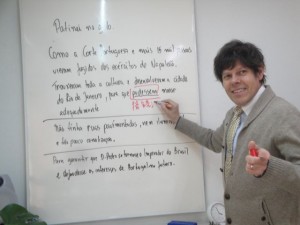 Como a Corte Portuguesa e mais 15 mil
vieram fugidos dos exércitos de Napoleão.
Trouxeram toda a cultura e desenvolveram a cidade
do Rio de Janeiro, para que pudessem morar
adequadamente
Não tinha ruas pavimentadas, nem
e tão pouco canalização.
Para garantir que D. Pedro se tornasse Imperador do Brasil
e defendesse os interesses de Portugal